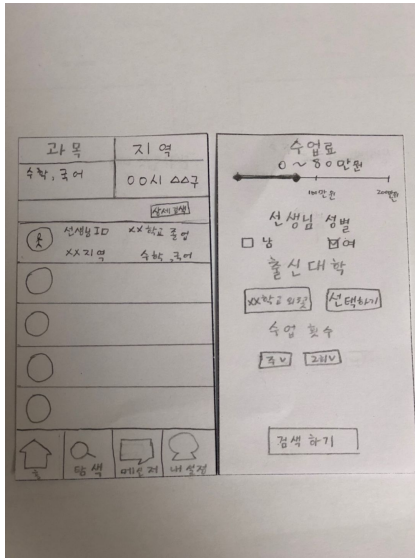 과목 지역
수학, 국어 00시 △△구
상세검색
선생님ID XX학교 졸업
XX지역 수학, 국어
홈 탐색 메신저 내 설정
수업료
0 ~ 80만원
100만원 200만원
선생님 성별
남 여
출신대학
XX학교 외 선택하기
수업 횟수
주 v 2회 v
검색하기